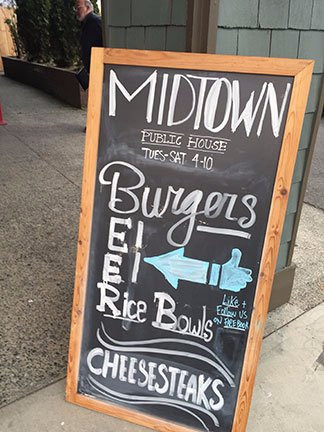 MIDTOWN
PUBLIC HOUSE
TUES-SAT 4-10
Burgers
E
E
Rice Bowls
Like +
Follow us
on Facebook
CHEESESTEAKS